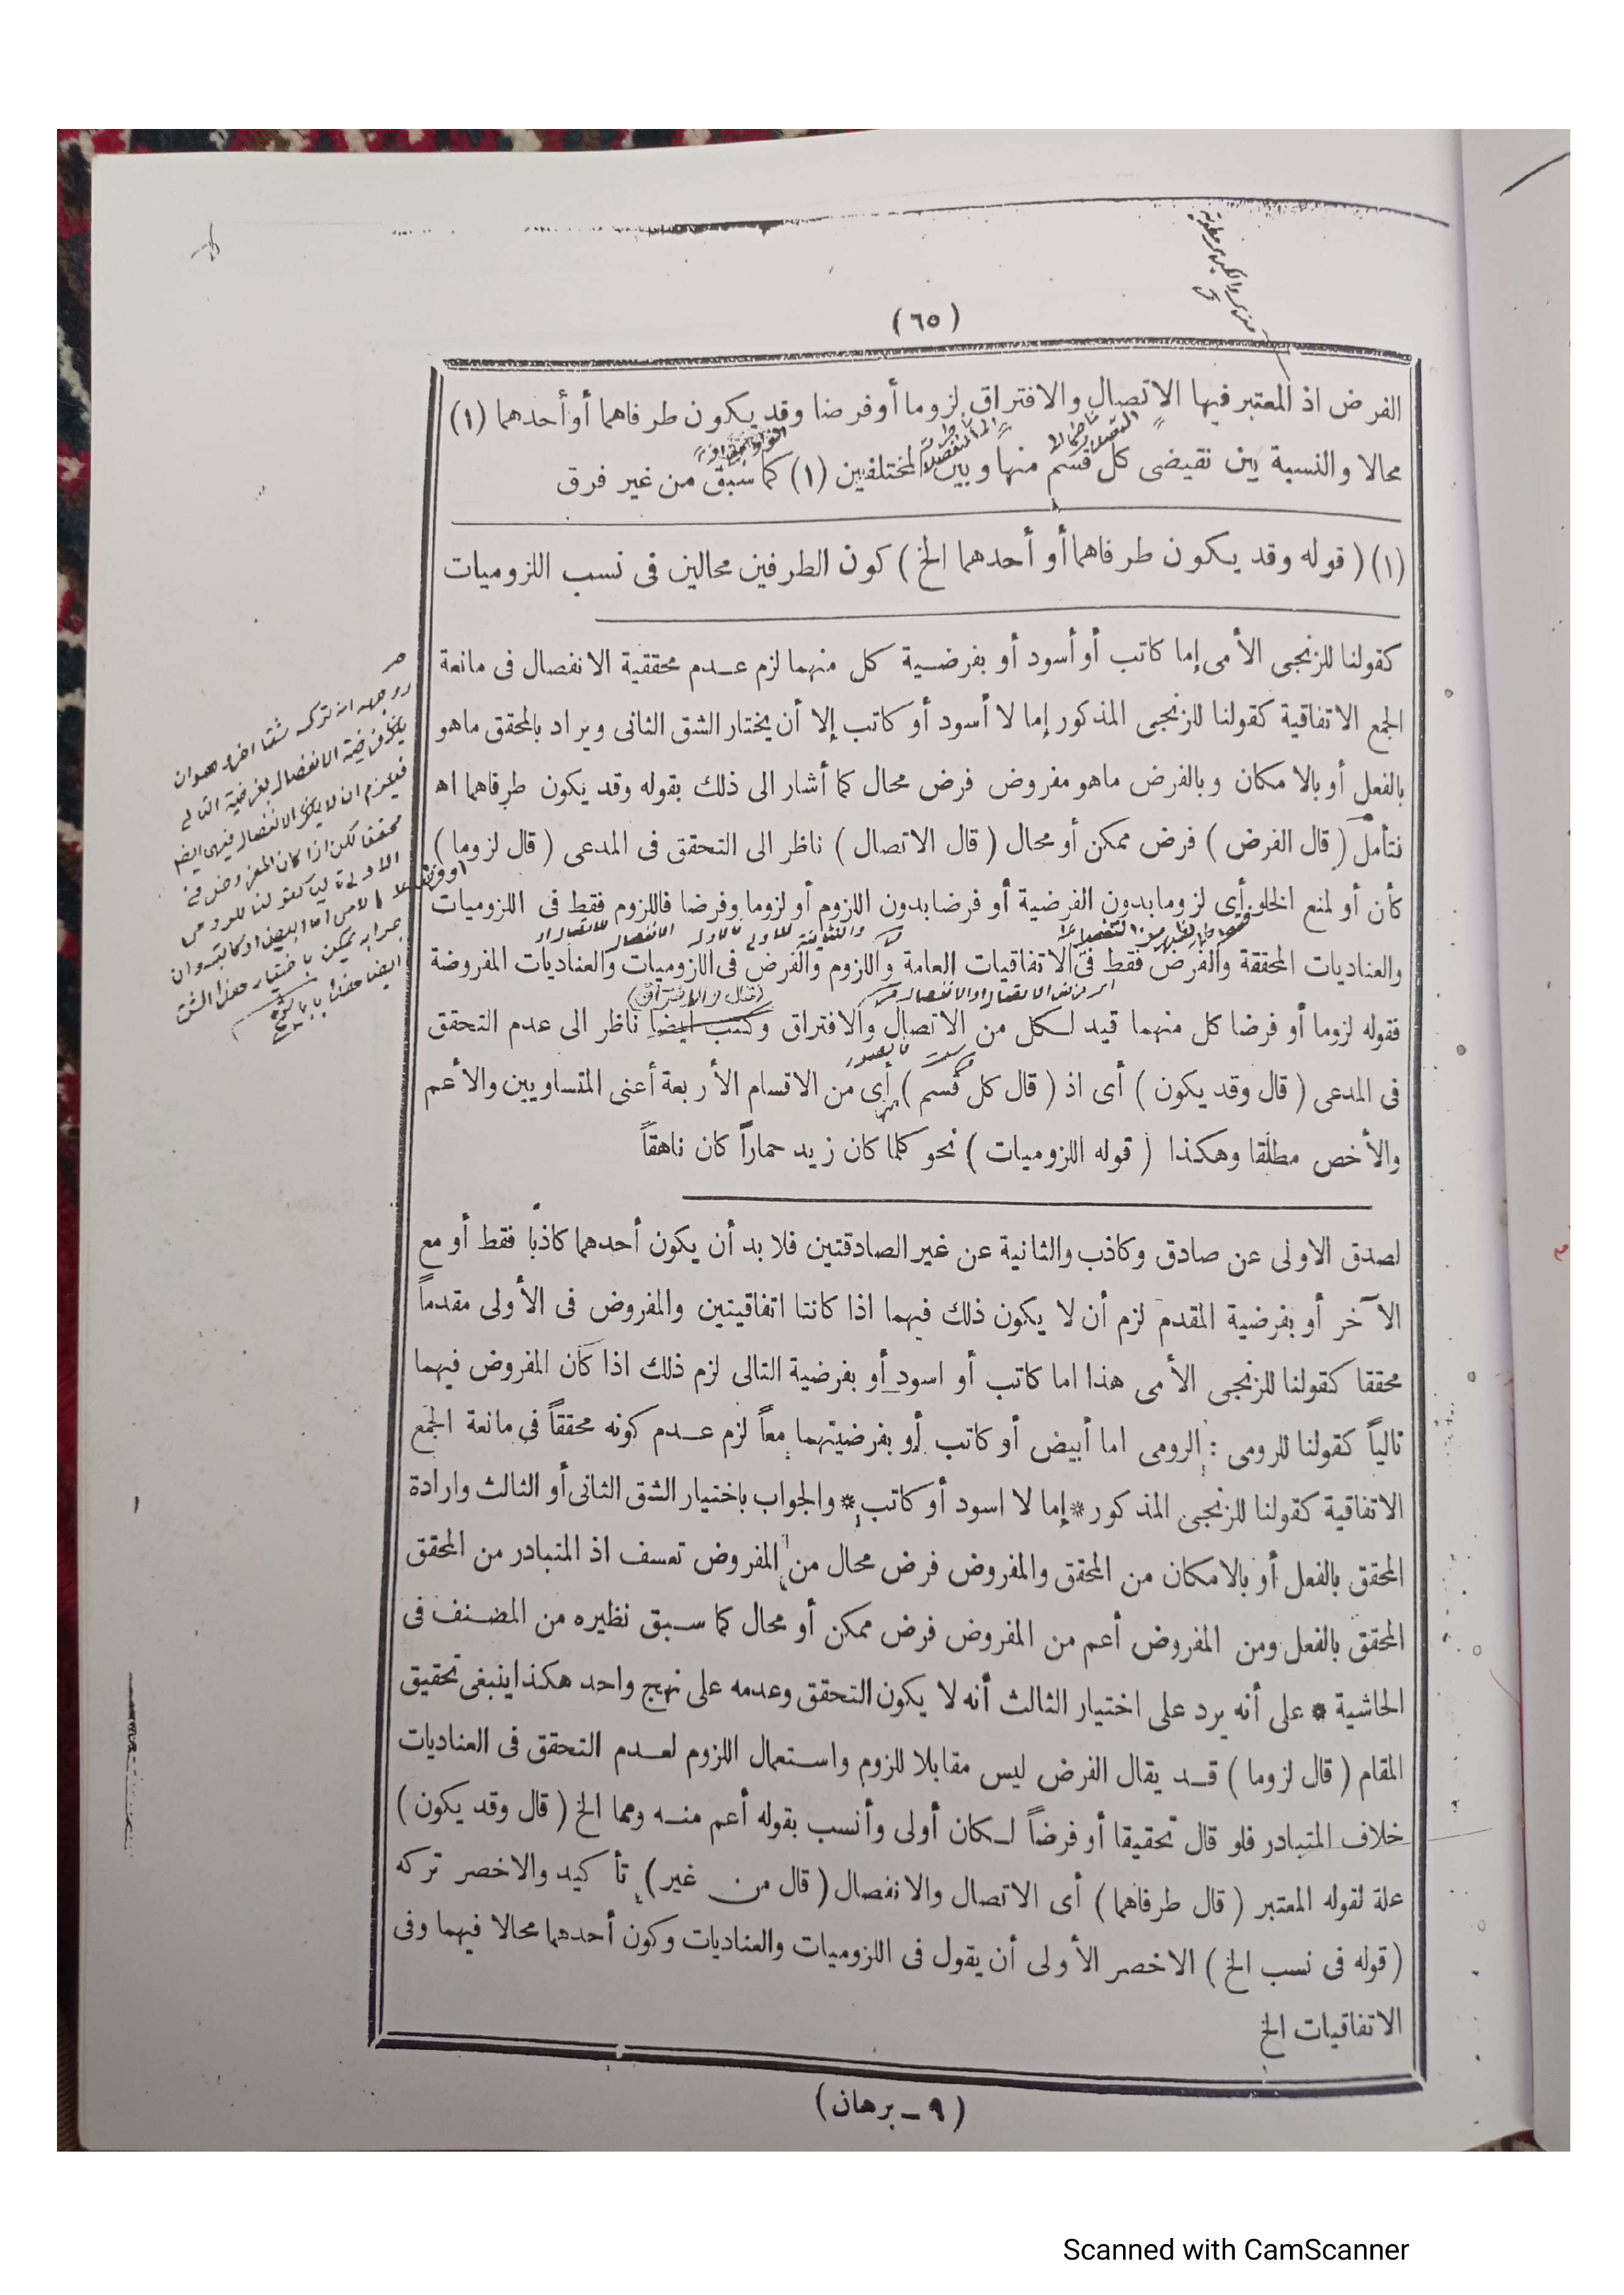 (٦٥)
الفرض اذ المعتبر فيها الاتصال والافتراق لزوما أوفرضا وقد يكون طرفاهما أو أحدهما (١)
محالا والنسبة بين نقيضى كل قسم منها وبين المختلفين (١) كما سبق من غير فرق
(١) ( قوله وقد يكون طرفاهما أو أحدهما الخ ) كون الطرفين محالين فى نسب اللزوميات
كقولنا للزنجى الأمى إما كاتب أو أسود أو بفرضية كل منهما لزم عدم محققية الانفصال فى مانعة
الجمع الاتفاقية كقولنا للزنجى المذكور إما لا أسود أو كاتب إلا أن يختار الشق الثانى ويراد بالمحقق ماهو
بالفعل أو بالامكان وبالفرض ماهو مفروض فرض محال كما أشار الى ذلك بقوله وقد يكون طرفاهما اه
نتأمل ( قال الفرض ) فرض ممكن أو محال ( قال الاتصال ) ناظر الى التحقق فى المدعى ( قال لزوما )
كأن أو لمنع الخلو أى لزوما بدون الفرضية أو فرضا بدون اللزوم أو لزوما وفرضا فاللزوم فقط فى اللزوميات
والعناديات المحققة والفرض فقط فى الاتفاقيات العامة واللزوم والفرض فى اللزوميات والعناديات المفروضة
(قال والافتراق)
فقوله لزوما أو فرضا كل منهما قيد لكل من الاتصال والافتراق وكتب أيضا ناظر الى عدم التحقق
فى المدعى ( قال وقد يكون ) أى اذ ( قال كل قسم ) أى من الاقسام الأربعة أعنى المتساويين والأعم
والأخص مطلقا وهكذا ( قوله اللزوميات ) نحو كلما كان زيد حماراً كان ناهقاً
لصدق الاولى عن صادق وكاذب والثانية عن غير الصادقتين فلا بد أن يكون أحدهما كاذبا فقط أو مع
الآخر أو بفرضية المقدم لزم أن لا يكون ذلك فيهما اذا كانتا اتفاقيتين والمفروض فى الأولى مقدماً
محققا كقولنا للزنجى الأمى هذا اما كاتب أو اسود أو بفرضية التالى لزم ذلك اذا كان المفروض فيهما
تالياً كقولنا للرومى : الرومى اما أبيض أو كاتب أو بفرضيتهما معاً لزم عدم كونه محققاً فى مانعة الجمع
الاتفاقية كقولنا للزنجى المذكور * إما لا اسود أو كاتب * والجواب باختيار الشق الثانى أو الثالث وارادة
المحقق بالفعل أو بالامكان من المحقق والمفروض فرض محال من المفروض تعسف اذ المتبادر من المحقق
المحقق بالفعل ومن المفروض أعم من المفروض فرض ممكن أو محال كما سبق نظيره من المصنف فى
الحاشية * على أنه يرد على اختيار الثالث أنه لا يكون التحقق وعدمه على نهج واحد هكذا ينبغى تحقيق
المقام ( قال لزوما ) قد يقال الفرض ليس مقابلا للزوم واستعمال اللزوم لعدم التحقق فى العناديات
خلاف المتبادر فلو قال تحقيقا أو فرضاً لكان أولى وأنسب بقوله أعم منه ومما الخ ( قال وقد يكون )
علة لقوله المعتبر ( قال طرفاهما ) أى الاتصال والانفصال ( قال من غير ) تأكيد والاخصر تركه
( قوله فى نسب الخ ) الاخصر الأولى أن يقول فى اللزوميات والعناديات وكون أحدهما محالا فيهما وفى
الاتفاقيات الخ
(٩ – برهان)
Scanned with CamScanner